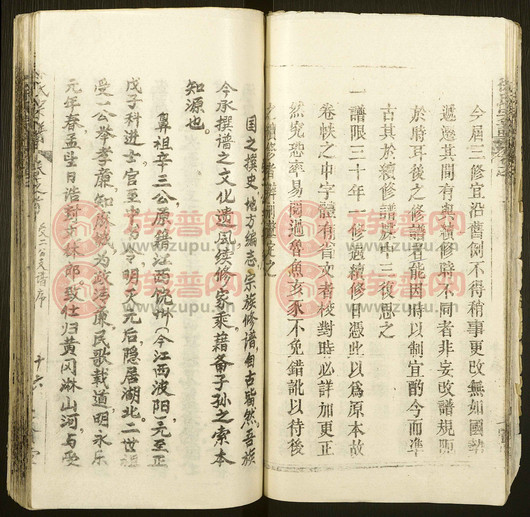 今屆三修宜沿舊例不得稍事更改無如國勢
遞遷其間有與舊修時不同者非妄改譜規
於時耳後之修譜者能因時以制宜酌今而準
古其於續修譜牒中三復思之
一譜限三十年一修遇續修日憑此以為原本故
卷帙之中字體有省文者校對時必詳加更正
然究恐率易閱過魯魚亥豕不免錯訛以待後
之續修者
国之撰史,地方编志,宗族修谱,自古皆然,吾族
今承撰谱之文化遗风,续修家乘,藉备子孙之索本
知源也。
鼻祖辛三公原籍江西饶州(今江西波阳),元至正
戊子科进士,官至中
元后隐居湖北。二世祖
受一公举孝廉,知
为政清廉,民歌载道,明永乐
元年春孟生日诰封文林郎,致仕归黄冈淋山河,与受
族谱网
www.zupu.cn
族谱网
www.zupu.cn
族谱网
www.zupu.cn
族谱网
www.zupu.cn